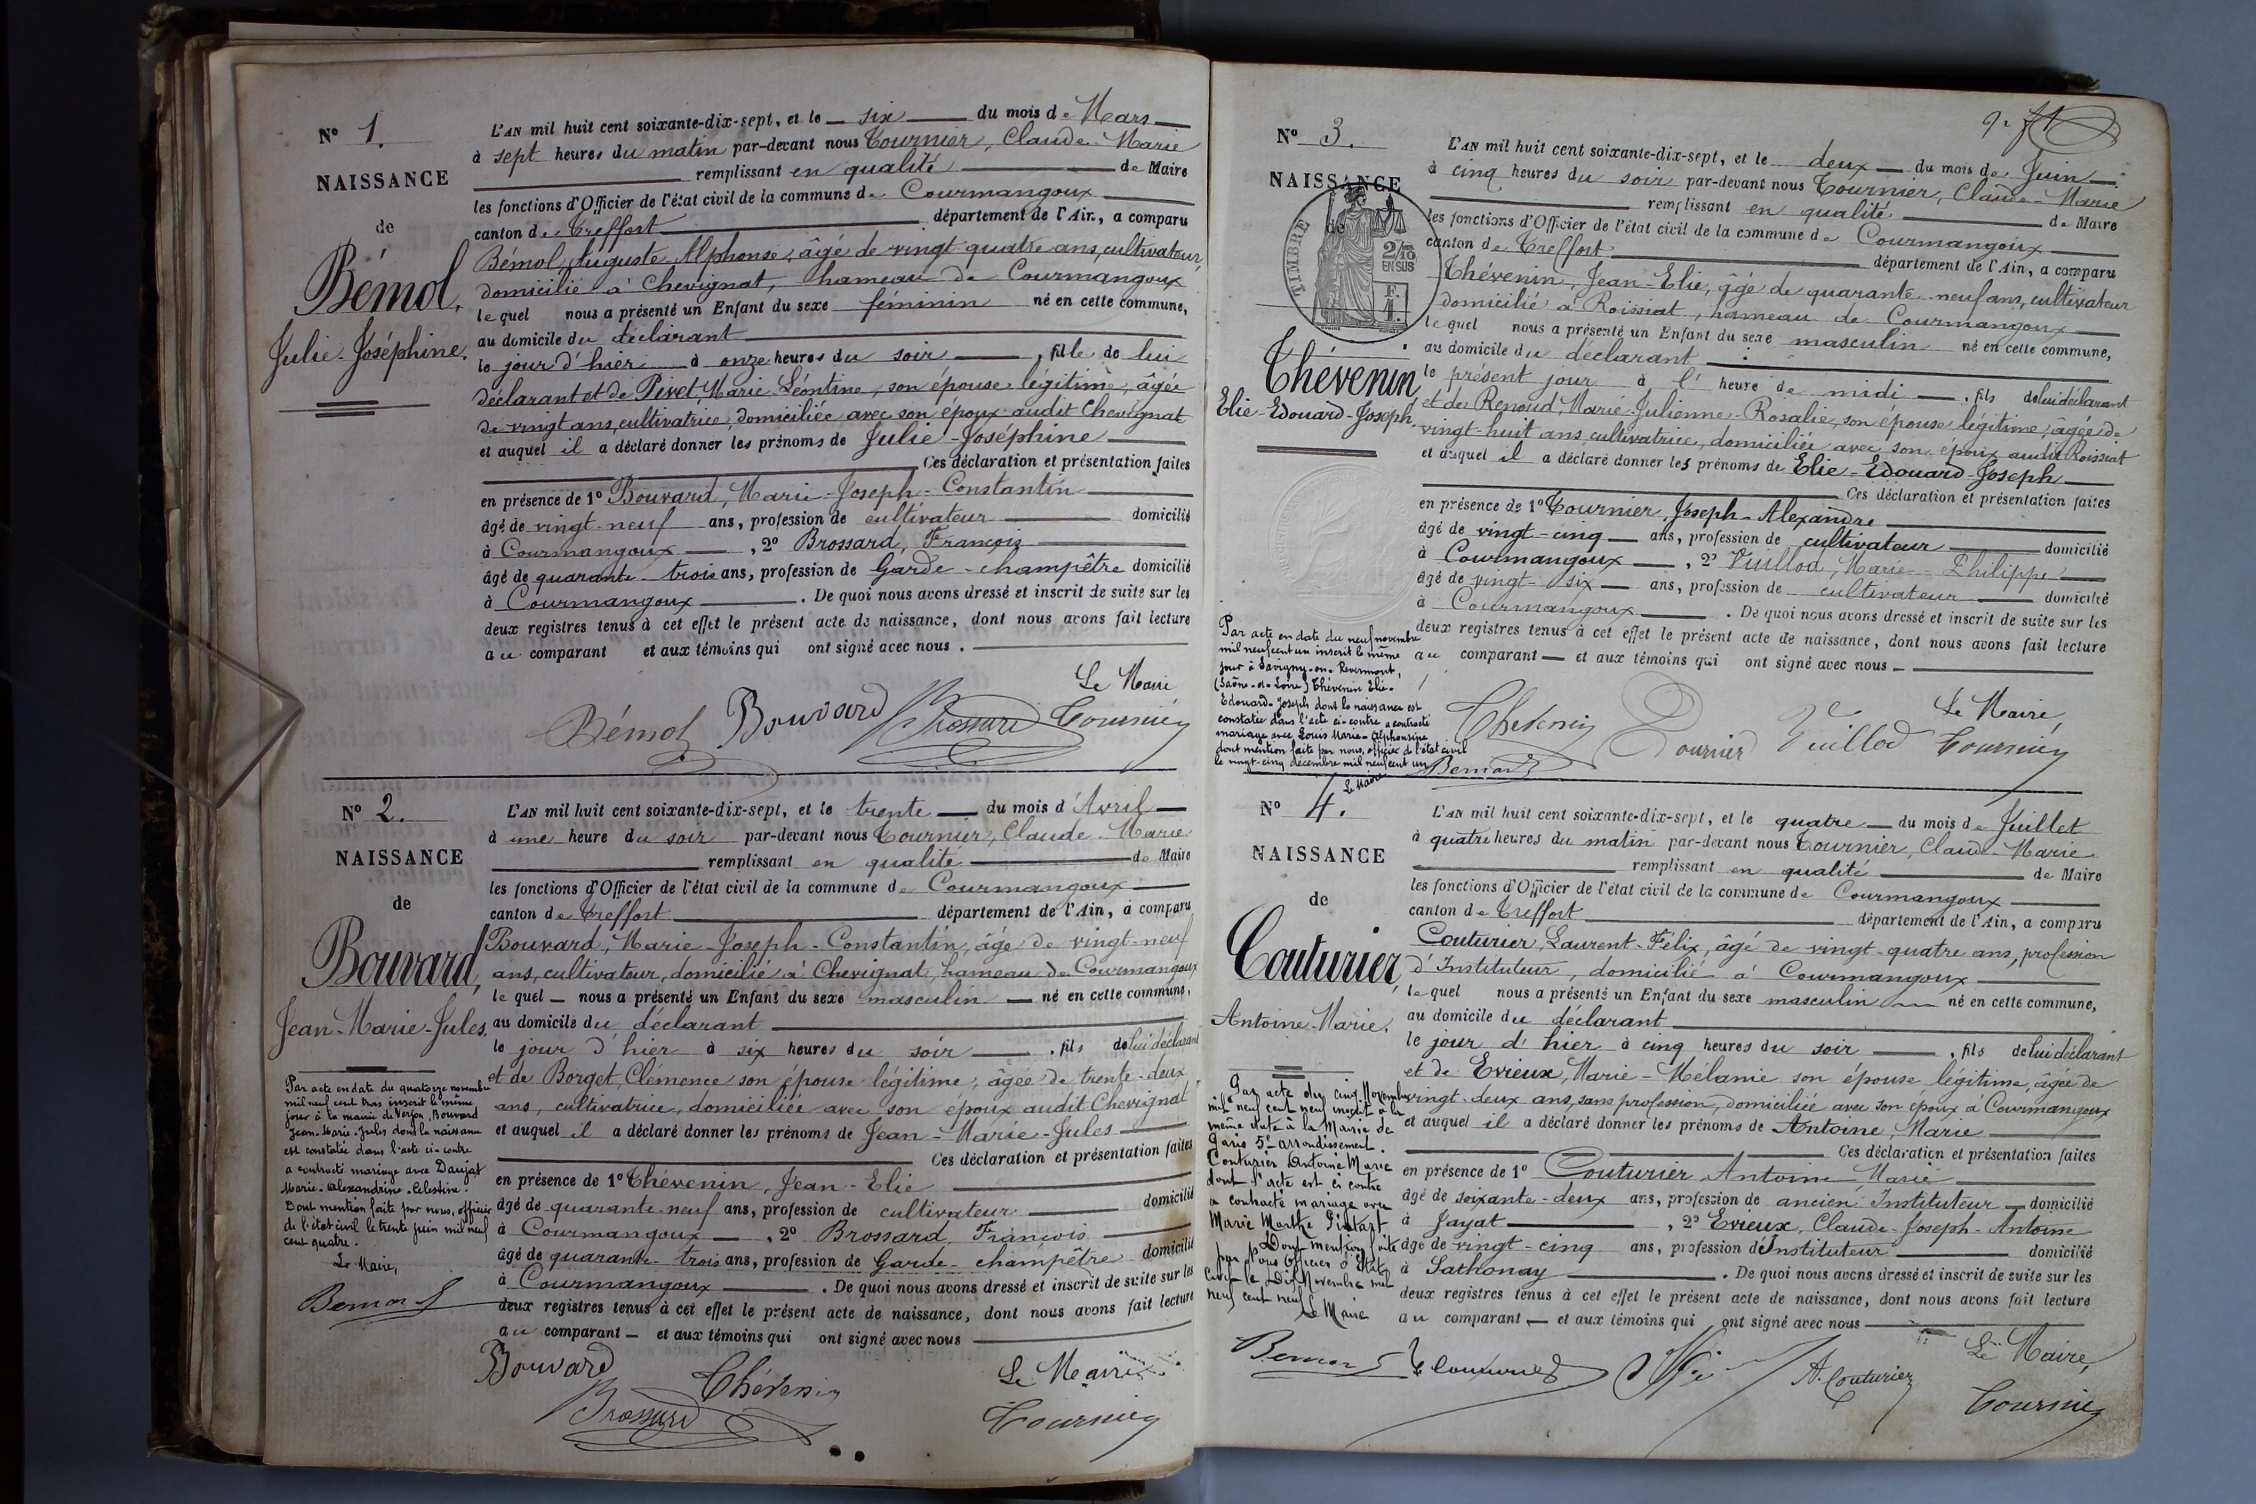 N° 1.
NAISSANCE
de
Bémol,
Julie-Joséphine.
L'AN mil huit cent soixante-dix-sept, et le six du mois de Mars
à sept heures du matin par-devant nous Tournier, Claude-Marie
remplissant en qualité de Maire
les fonctions d'Officier de l'état civil de la commune de Courmangoux
canton de Treffort département de l'Ain, a comparu
Bémol, Auguste Alphonse, âgé de vingt-quatre ans, cultivateur,
domicilié à Chevignat, hameau de Courmangoux
lequel nous a présenté un Enfant du sexe féminin né en cette commune,
au domicile du déclarant
le jour d'hier à onze heures du soir, fille de lui
déclarant et de Pivet, Marie Léontine, son épouse légitime, âgée
de vingt ans, cultivatrice, domiciliée avec son époux audit Chevignat
et auquel il a déclaré donner les prénoms de Julie-Joséphine
Ces déclaration et présentation faites
en présence de 1° Bouvard, Marie-Joseph-Constantin
âgé de vingt-neuf ans, profession de cultivateur domicilié
à Courmangoux, 2° Brossard, François
âgé de quarante-trois ans, profession de Garde-champêtre domicilié
à Courmangoux. De quoi nous avons dressé et inscrit de suite sur les
deux registres tenus à cet effet le présent acte de naissance, dont nous avons fait lecture
au comparant et aux témoins qui ont signé avec nous.
Le Maire
Bémol Bouvard Brossard Tournier
N° 2.
NAISSANCE
de
Bouvard,
Jean-Marie-Jules.
Par acte en date du quatorze novembre
mil neuf cent trois inscrit le même
jour à la mairie de Verjon, Bouvard
Jean-Marie-Jules dont la naissance
est constatée dans l'acte ci-contre
a contracté mariage avec Daujat
Marie-Alexandrine-Celestine.
Dont mention faite par nous, officier
de l'état civil le trente juin mil neuf
cent quatre.
Le Maire,
L'AN mil huit cent soixante-dix-sept, et le trente du mois d'Avril
à une heure du soir par-devant nous Tournier, Claude-Marie
remplissant en qualité de Maire
les fonctions d'Officier de l'état civil de la commune de Courmangoux
canton de Treffort département de l'Ain, a comparu
Bouvard, Marie-Joseph-Constantin, âgé de vingt-neuf
ans, cultivateur, domicilié à Chevignat, hameau de Courmangoux
lequel nous a présenté un Enfant du sexe masculin né en cette commune,
au domicile du déclarant
le jour d'hier à six heures du soir, fils de lui déclarant
et de Borget, Clémence son épouse légitime, âgée de trente-deux
ans, cultivatrice, domiciliée avec son époux audit Chevignat
et auquel il a déclaré donner les prénoms de Jean-Marie-Jules
Ces déclaration et présentation faites
en présence de 1° Thévenin, Jean-Elie
âgé de quarante-neuf ans, profession de cultivateur domicilié
à Courmangoux, 2° Brossard, François
âgé de quarante-trois ans, profession de Garde-champêtre domicilié
à Courmangoux. De quoi nous avons dressé et inscrit de suite sur les
deux registres tenus à cet effet le présent acte de naissance, dont nous avons fait lecture
au comparant et aux témoins qui ont signé avec nous
Bouvard Thévenin Le Maire
Brossard Tournier
N° 3.
NAISSANCE
de
TIMBRE
2/10 EN SUS
F. 1.
Thévenin
Elie-Edouard-Joseph.
Par acte en date du neuf novembre
mil neuf cent un inscrit le même
jour à Savigny-en-Revermont,
(Saône-et-Loire) Thévenin Elie-
Edouard-Joseph dont la naissance est
constatée dans l'acte ci-contre a contracté
mariage avec Louis Marie-Alphonsine
dont mention faite par nous, officier de l'état civil
le vingt-cinq décembre mil neuf cent un
Le Maire
L'AN mil huit cent soixante-dix-sept, et le deux du mois de Juin
à cinq heures du soir par-devant nous Tournier, Claude-Marie
remplissant en qualité de Maire
les fonctions d'Officier de l'état civil de la commune de Courmangoux
canton de Treffort département de l'Ain, a comparu
Thévenin, Jean-Elie, âgé de quarante-neuf ans, cultivateur
domicilié à Roissiat, hameau de Courmangoux
lequel nous a présenté un Enfant du sexe masculin né en cette commune,
au domicile du déclarant
le présent jour à l'heure de midi, fils de lui déclarant
et de Renoud, Marie-Julienne-Rosalie, son épouse légitime, âgée de
vingt-huit ans, cultivatrice, domiciliée avec son époux audit Roissiat
et auquel il a déclaré donner les prénoms de Elie-Edouard-Joseph
Ces déclaration et présentation faites
en présence de 1° Tournier, Joseph-Alexandre
âgé de vingt-cinq ans, profession de cultivateur domicilié
à Courmangoux, 2° Vuillod, Marie-Philippe
âgé de vingt-six ans, profession de cultivateur domicilié
à Courmangoux. De quoi nous avons dressé et inscrit de suite sur les
deux registres tenus à cet effet le présent acte de naissance, dont nous avons fait lecture
au comparant et aux témoins qui ont signé avec nous
Le Maire,
Thévenin Tournier Vuillod Tournier
N° 4.
NAISSANCE
de
Couturier,
Antoine-Marie.
Par acte du cinq Novembre
mil neuf cent neuf inscrit à la
même date à la Mairie de
Paris 5e arrondissement.
Couturier Antoine Marie
dont l'acte est ci contre
a contracté mariage avec
Marie Marthe
Dont mention faite
par nous Officier d'Etat
Civil le Dix Novembre mil
neuf cent neuf
Le Maire
L'AN mil huit cent soixante-dix-sept, et le quatre du mois de Juillet
à quatre heures du matin par-devant nous Tournier, Claude-Marie
remplissant en qualité de Maire
les fonctions d'Officier de l'état civil de la commune de Courmangoux
canton de Treffort département de l'Ain, a comparu
Couturier, Laurent-Félix, âgé de vingt-quatre ans, profession
d'Instituteur, domicilié à Courmangoux
lequel nous a présenté un Enfant du sexe masculin né en cette commune,
au domicile du déclarant
le jour d'hier à cinq heures du soir, fils de lui déclarant
et de Evieux, Marie-Mélanie son épouse légitime, âgée de
vingt-deux ans, sans profession, domiciliée avec son époux à Courmangoux
et auquel il a déclaré donner les prénoms de Antoine, Marie
Ces déclaration et présentation faites
en présence de 1° Couturier Antoine Marie
âgé de soixante-deux ans, profession de ancien Instituteur domicilié
à Jayat, 2° Evieux, Claude-Joseph-Antoine
âgé de vingt-cinq ans, profession d'Instituteur domicilié
à Sathonay. De quoi nous avons dressé et inscrit de suite sur les
deux registres tenus à cet effet le présent acte de naissance, dont nous avons fait lecture
au comparant et aux témoins qui ont signé avec nous
Le Maire,
Couturier A. Couturier Tournier